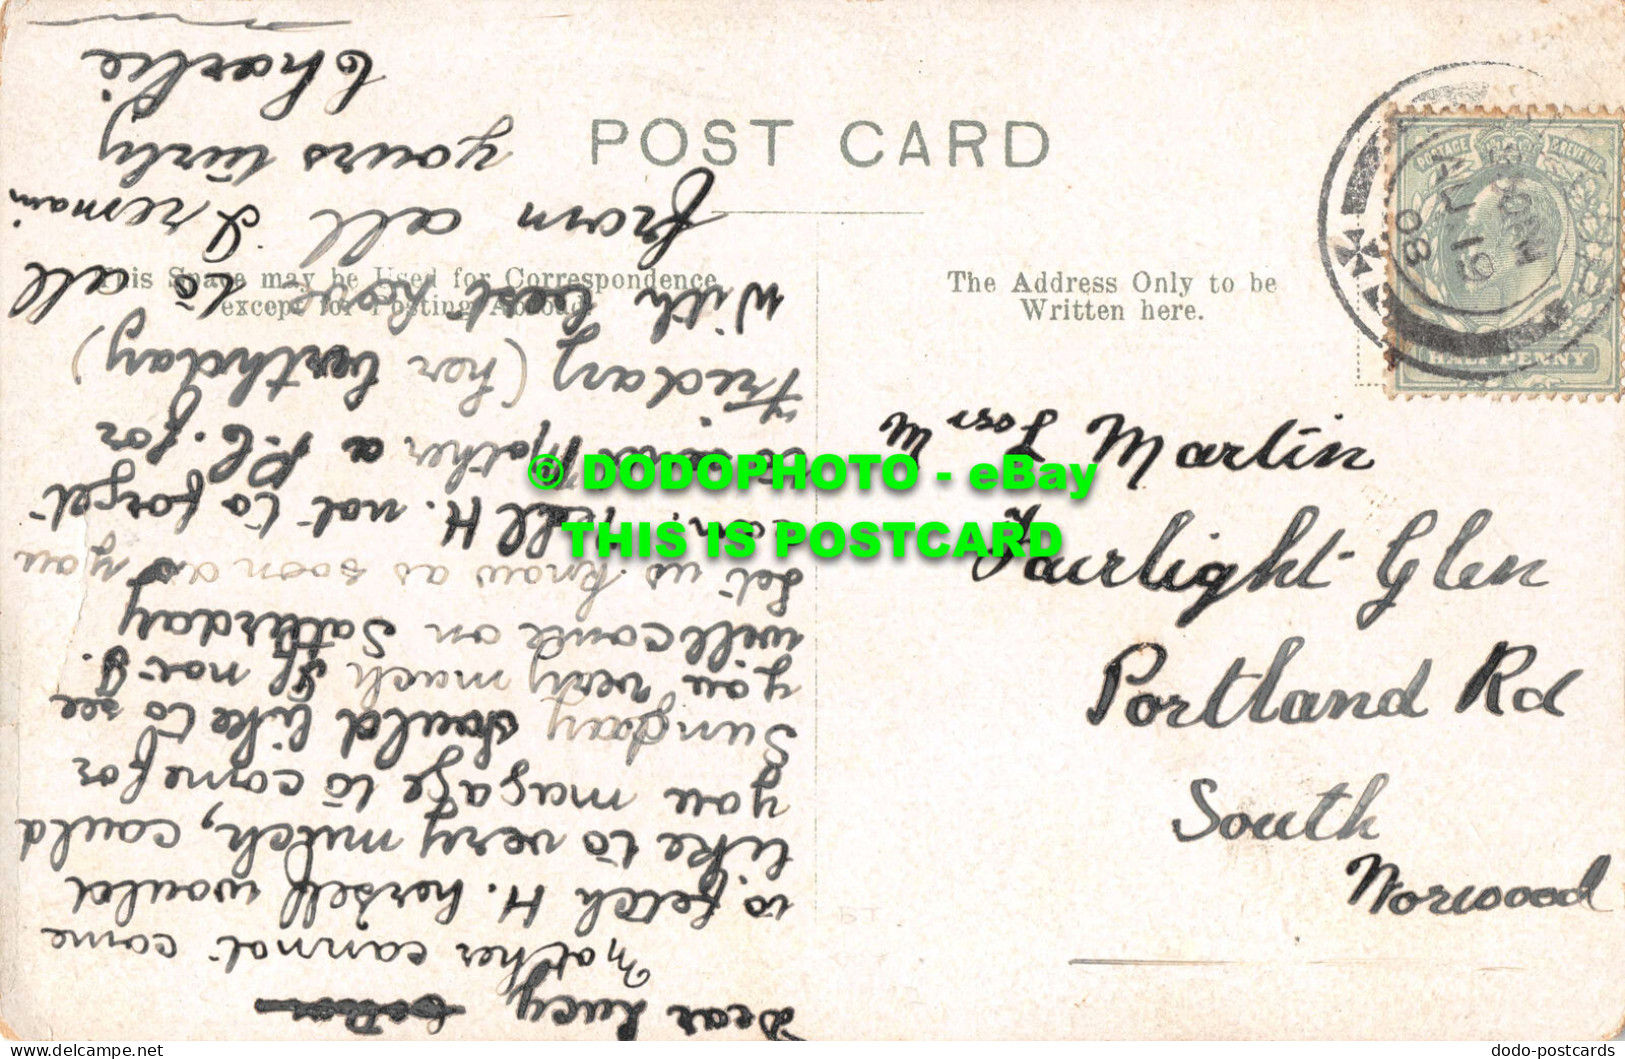 POST CARD
This Space may be Used for Correspondence
except for Posting Abroad.
The Address Only to be
Written here.
POSTAGE & REVENUE
HALF PENNY
JU 19
08
Mrs Martin
Fairlight Glen
Portland Rd
South
Norwood
Dear Lucy
Mother cannot come
to fetch H. herself would
like to very mutch, could
you magage to come for
Sunday should like to see
you very much If not I.
will come on Satturday
Let us know as soon as you
can. Tell H. not to forget
to send Mother a P.C. for
Friday (her berthday)
With best to all
from all I remain
yours turly
Charlie
© DODOPHOTO - eBay
THIS IS POSTCARD
delcampe.net
dodo-postcards